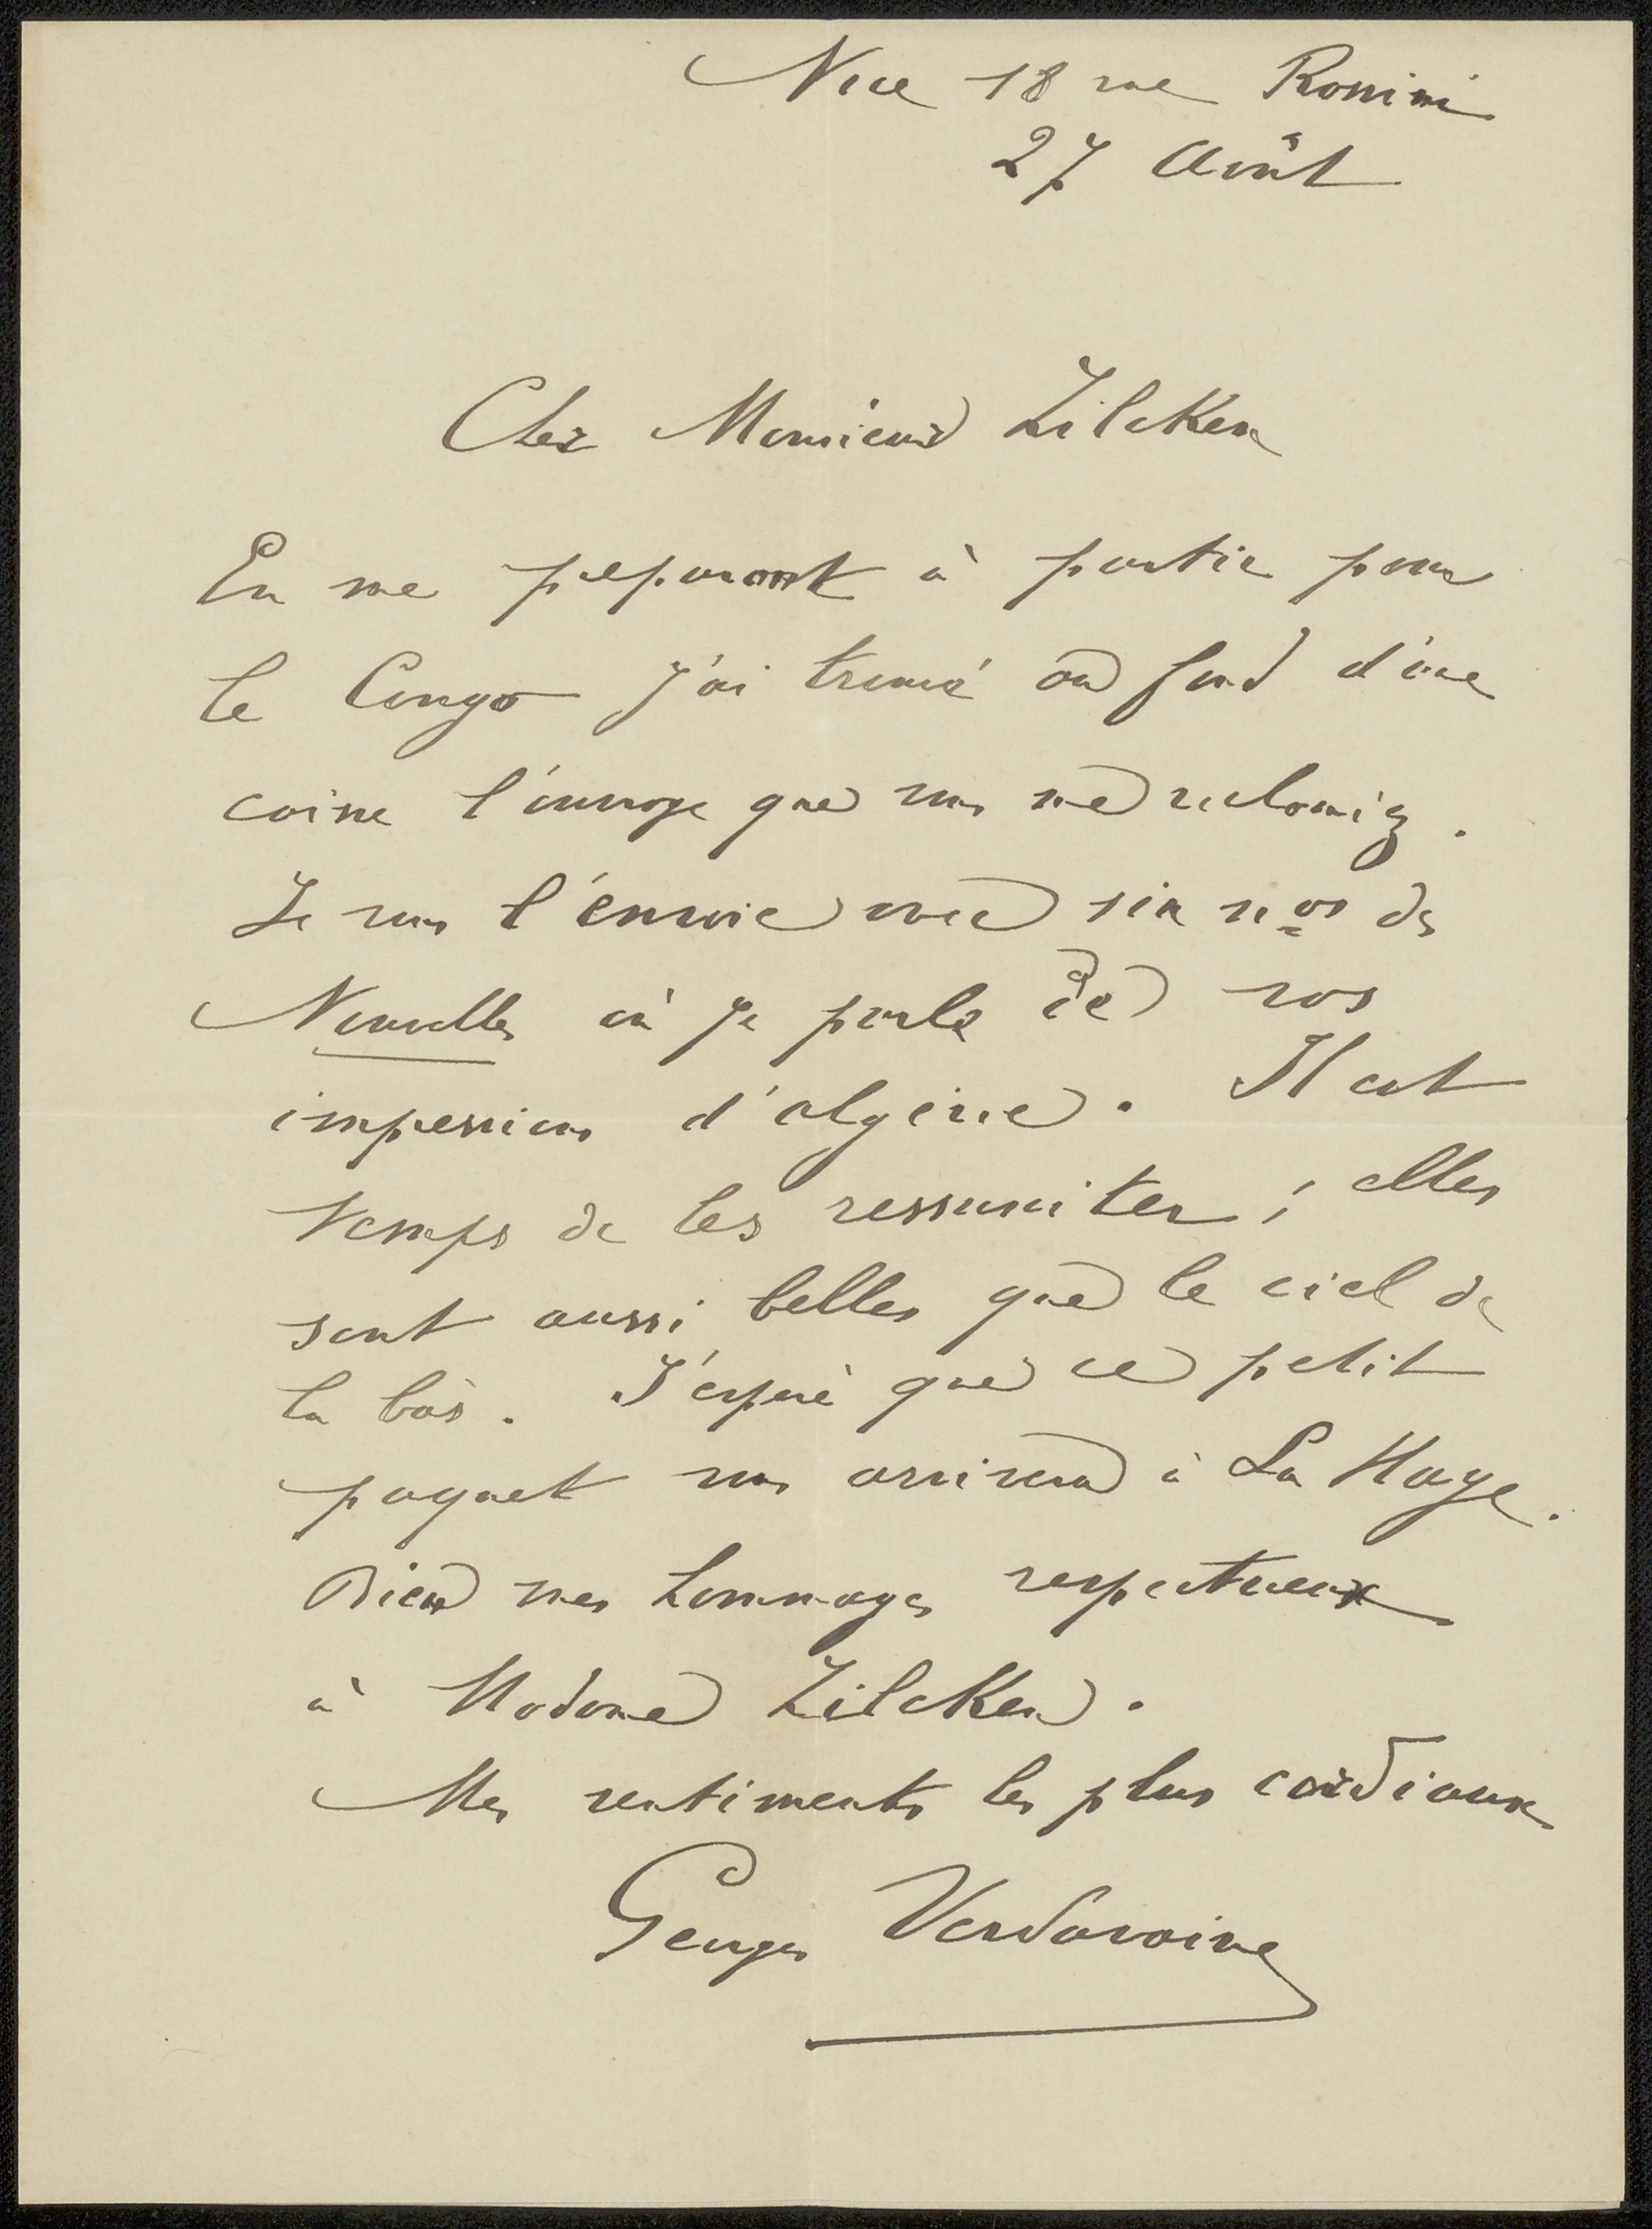 Nice 18 rue Rossini
27 Août
Cher Monsieur Zilcken
En me preparant à partir pour
le Congo j'ai trouvé au fond d'une
caisse l'ouvrage que vous me reclamiez.
Je vous l'envoie avec six nos des
Nouvelles où je parle de vos
impressions d'algérie. Il est
temps de les ressusciter; elles
sont aussi belles que le ciel de
la bàs. J'espère que ce petit
paquet vous arrivera à La Haye.
Bien mes hommages respectueux
à Madame Zilcken.
Mes sentiments les plus cordiaux
Georges Verdavoine